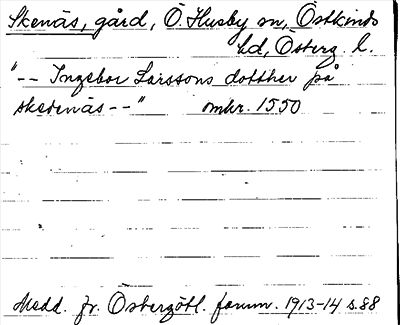 Skenäs, gård, Ö. Husby sn, Östkinds
hd, Österg. l.
"-- Ingebor Larssons dotther på
skedenäs --" omkr. 1550
Medd. fr. Östergötl. fornm. 1913-14 s. 88